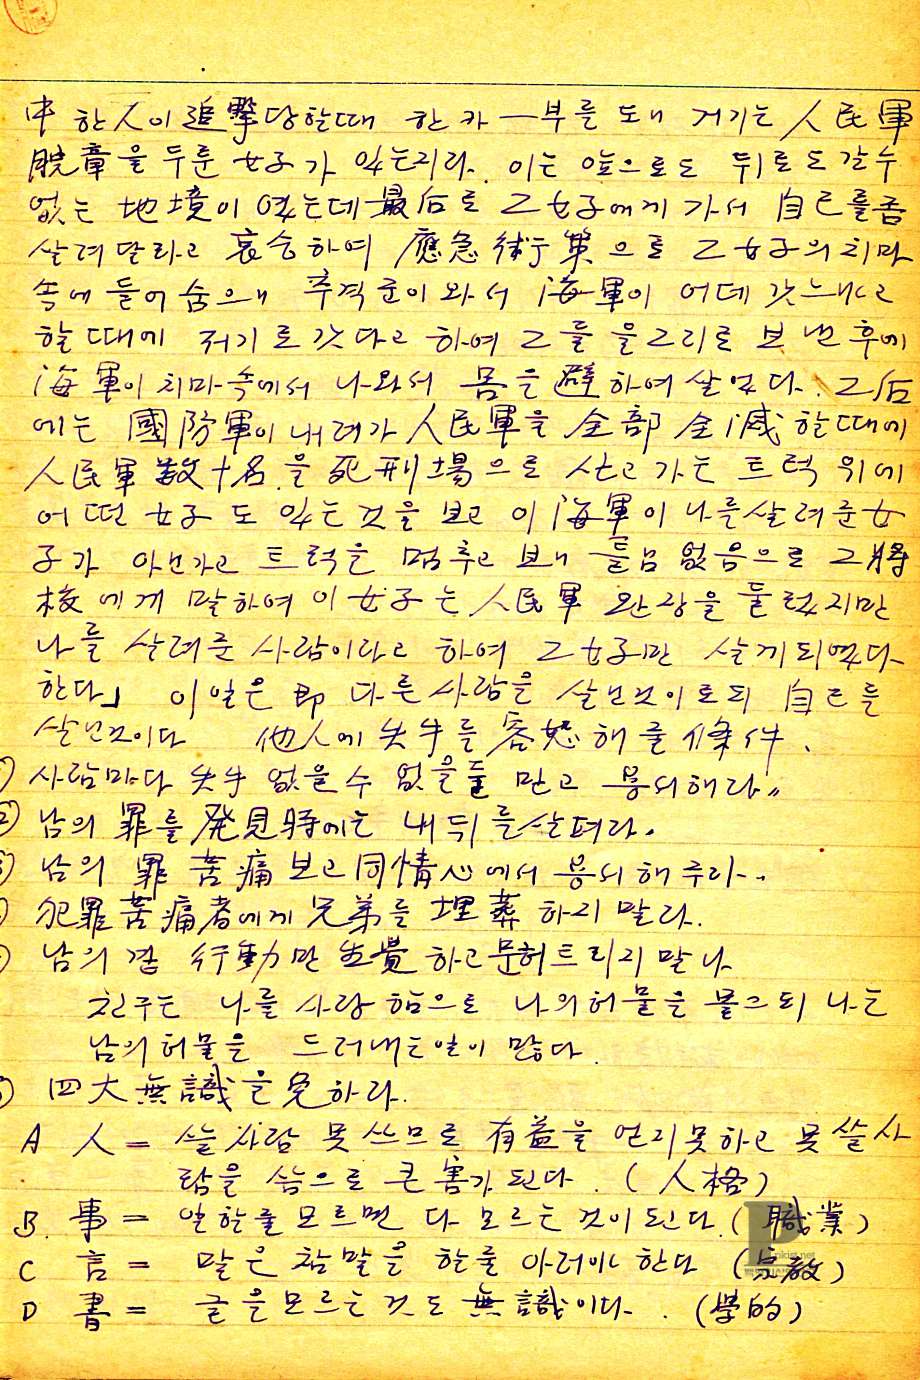 中 한人이 追擊당할때 한카ー부를 도니 거기는 人民軍
腕章을 두룬 女子가 있는지라. 이는 앞으로도 뒤로도갈수
없는 地境이 였는데 最后로 그女子에게 가서 自己를좀
살려달라고 哀乞하여 應急術策으로 그女子의치마
속에 들어숨으매 추격군이와서 海軍이 어데 갓느냐고
할때에 저기로갓다고 하여 그들을그리로 보낸후에
海軍이치마속에서 나와서 몸을避하여살었다. 그后
에는 國防軍이내려가 人民軍을 全部 全滅할때에
人民軍 数十名을 死刑場으로 실고가는 트럭 위에
어떤 女子도 있는것을보고 이海軍이 나를살려준女
子가 아닌가고 트럭을 멈추고 보니 틀님없음으로 그將
校에게 말하여 이女子는 人民軍 완장을 둘렀지만
나를 살려준 사람이라고 하여 그女子만 살게되였다
한다」 이일은 即 다른사람을 살닌것이로되 自己를
살닌것이다 他人에失手를 容恕해줄 條件.
사람마다 失手 없을수 없을줄 믿고 용서해라〃
남의 罪를 発見時에는 내뒤를살펴라.
남의 罪 苦痛보고同情心에서 용서해주라.
犯罪苦痛者에게 兄弟를 埋葬하지말라.
남의 겉 行動만生覺하고문허트리지말나
친구는 나를 사랑함으로 나의허물을 몰으되 나는
남의허물을 드러내는일이 많다.
四大無識을免하라.
A 人= 쓸사람 못쓰므로 有益을 얻지못하고 못쓸사
람을 씀으로 큰害가된다. (人格)
B. 事= 일할줄모르면 다모르는것이된다. (職業)
C 言= 말은 참말을 할줄 아러야한다 (宗教)
D 書= 글을모르는것도 無識이다. (學的)